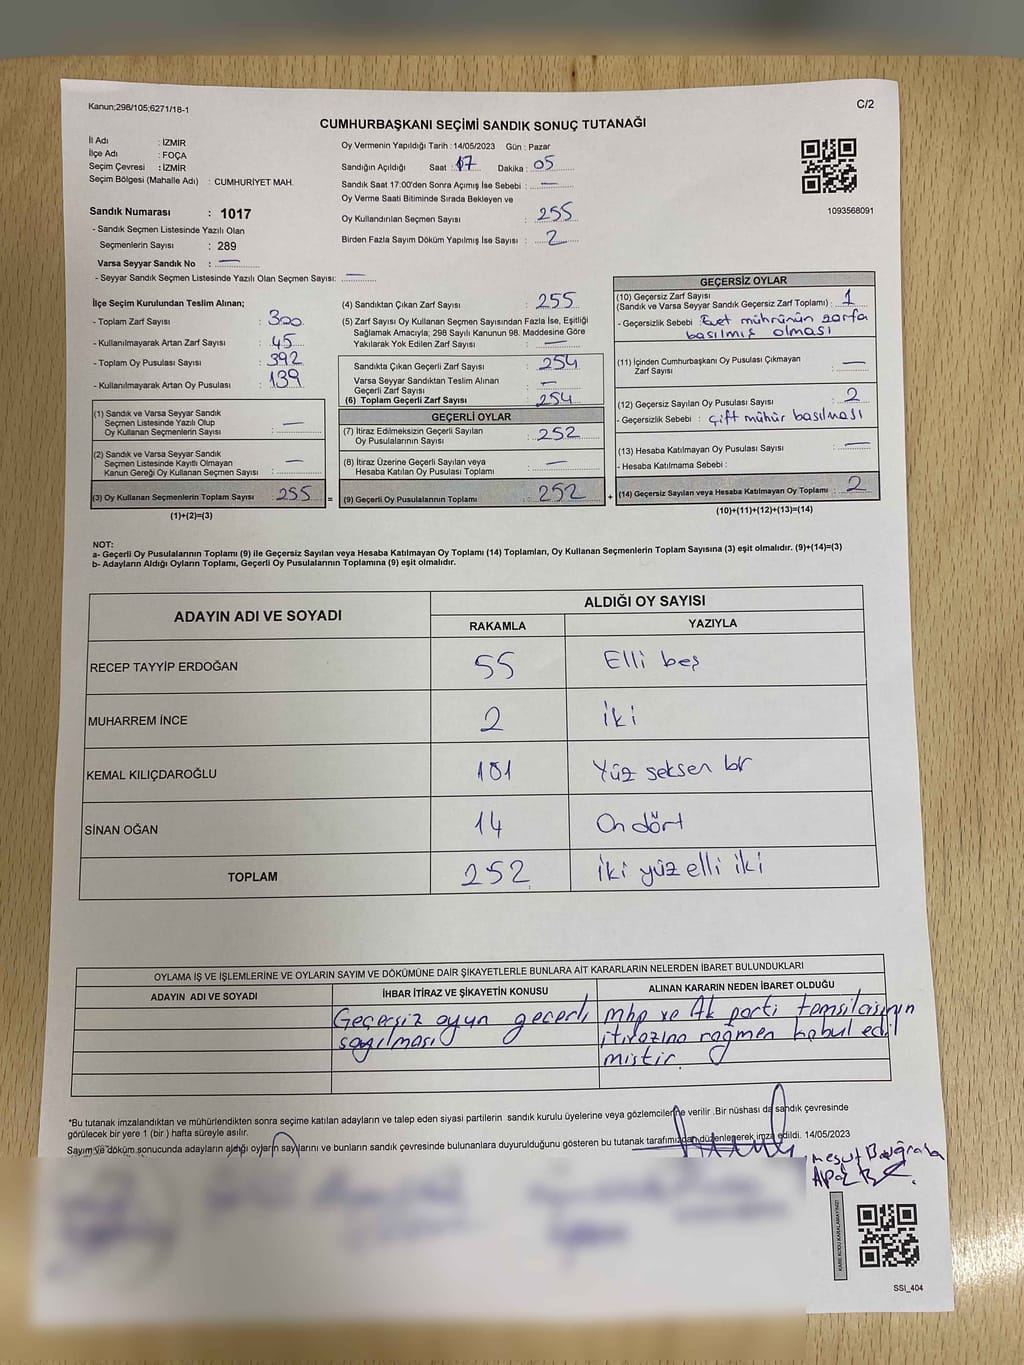 Kanun;298/105;6271/18-1
C/2
CUMHURBAŞKANI SEÇİMİ SANDIK SONUÇ TUTANAĞI
İl Adı : İZMİR
İlçe Adı : FOÇA
Seçim Çevresi : İZMİR
Seçim Bölgesi (Mahalle Adı) : CUMHURİYET MAH.
Sandık Numarası : 1017
- Sandık Seçmen Listesinde Yazılı Olan
Seçmenlerin Sayısı : 289
Varsa Seyyar Sandık No : —
- Seyyar Sandık Seçmen Listesinde Yazılı Olan Seçmen Sayısı: —
Oy Vermenin Yapıldığı Tarih : 14/05/2023 Gün : Pazar
Sandığın Açıldığı Saat : 17 Dakika : 05
Sandık Saat 17:00'den Sonra Açımış İse Sebebi : —
Oy Verme Saati Bitiminde Sırada Bekleyen ve
Oy Kullandırılan Seçmen Sayısı : 255
Birden Fazla Sayım Döküm Yapılmış İse Sayısı : 2
1093568091
İlçe Seçim Kurulundan Teslim Alınan;
- Toplam Zarf Sayısı : 300
- Kullanılmayarak Artan Zarf Sayısı : 45
- Toplam Oy Pusulası Sayısı : 392
- Kullanılmayarak Artan Oy Pusulası : 139
(1) Sandık ve Varsa Seyyar Sandık
Seçmen Listesinde Yazılı Olup
Oy Kullanan Seçmenlerin Sayısı : —
(2) Sandık ve Varsa Seyyar Sandık
Seçmen Listesinde Kayıtlı Olmayan
Kanun Gereği Oy Kullanan Seçmen Sayısı : —
(3) Oy Kullanan Seçmenlerin Toplam Sayısı : 255 =
(1)+(2)=(3)
(4) Sandıktan Çıkan Zarf Sayısı : 255
(5) Zarf Sayısı Oy Kullanan Seçmen Sayısından Fazla İse, Eşitliği
Sağlamak Amacıyla; 298 Sayılı Kanunun 98. Maddesine Göre
Yakılarak Yok Edilen Zarf Sayısı : —
Sandıkta Çıkan Geçerli Zarf Sayısı : 254
Varsa Seyyar Sandıktan Teslim Alınan
Geçerli Zarf Sayısı : —
(6) Toplam Geçerli Zarf Sayısı : 254
GEÇERLİ OYLAR
(7) İtiraz Edilmeksizin Geçerli Sayılan
Oy Pusulalarının Sayısı : 252
(8) İtiraz Üzerine Geçerli Sayılan veya
Hesaba Katılan Oy Pusulaları Toplamı : —
(9) Geçerli Oy Pusulalarının Toplamı : 252 +
GEÇERSİZ OYLAR
(10) Geçersiz Zarf Sayısı
(Sandık ve Varsa Seyyar Sandık Geçersiz Zarf Toplamı) : 1
- Geçersizlik Sebebi : Evet mührünün zarfa
basılmış olması
(11) İçinden Cumhurbaşkanı Oy Pusulası Çıkmayan
Zarf Sayısı : —
(12) Geçersiz Sayılan Oy Pusulası Sayısı : 2
- Geçersizlik Sebebi : Çift mühür basılması
(13) Hesaba Katılmayan Oy Pusulası Sayısı : —
- Hesaba Katılmama Sebebi :
(14) Geçersiz Sayılan veya Hesaba Katılmayan Oy Toplamı : 2
(10)+(11)+(12)+(13)=(14)
NOT:
a- Geçerli Oy Pusulalarının Toplamı (9) ile Geçersiz Sayılan veya Hesaba Katılmayan Oy Toplamı (14) Toplamları, Oy Kullanan Seçmenlerin Toplam Sayısına (3) eşit olmalıdır. (9)+(14)=(3)
b- Adayların Aldığı Oyların Toplamı, Geçerli Oy Pusulalarının Toplamına (9) eşit olmalıdır.
ADAYIN ADI VE SOYADI
ALDIĞI OY SAYISI
RAKAMLA YAZIYLA
RECEP TAYYİP ERDOĞAN 55 Elli beş
MUHARREM İNCE 2 iki
KEMAL KILIÇDAROĞLU 181 Yüz seksen bir
SİNAN OĞAN 14 On dört
TOPLAM 252 iki yüz elli iki
OYLAMA İŞ VE İŞLEMLERİNE VE OYLARIN SAYIM VE DÖKÜMÜNE DAİR ŞİKAYETLERLE BUNLARA AİT KARARLARIN NELERDEN İBARET BULUNDUKLARI
ADAYIN ADI VE SOYADI İHBAR İTİRAZ VE ŞİKAYETİN KONUSU ALINAN KARARIN NEDEN İBARET OLDUĞU
Geçersiz oyun geçerli mhp ve Ak parti temsilcisinin
sayılması itirazına rağmen kabul edil
miştir.
*Bu tutanak imzalandıktan ve mühürlendikten sonra seçime katılan adayların ve talep eden siyasi partilerin sandık kurulu üyelerine veya gözlemcilerine verilir .Bir nüshası da sandık çevresinde
görülecek bir yere 1 (bir ) hafta süreyle asılır.
Sayım ve döküm sonucunda adayların aldığı oyların sayılarını ve bunların sandık çevresinde bulunanlara duyurulduğunu gösteren bu tutanak tarafımızdan düzenlenerek imza edildi. 14/05/2023
KARE KODU KARALAMAYINIZ!
SSI_404